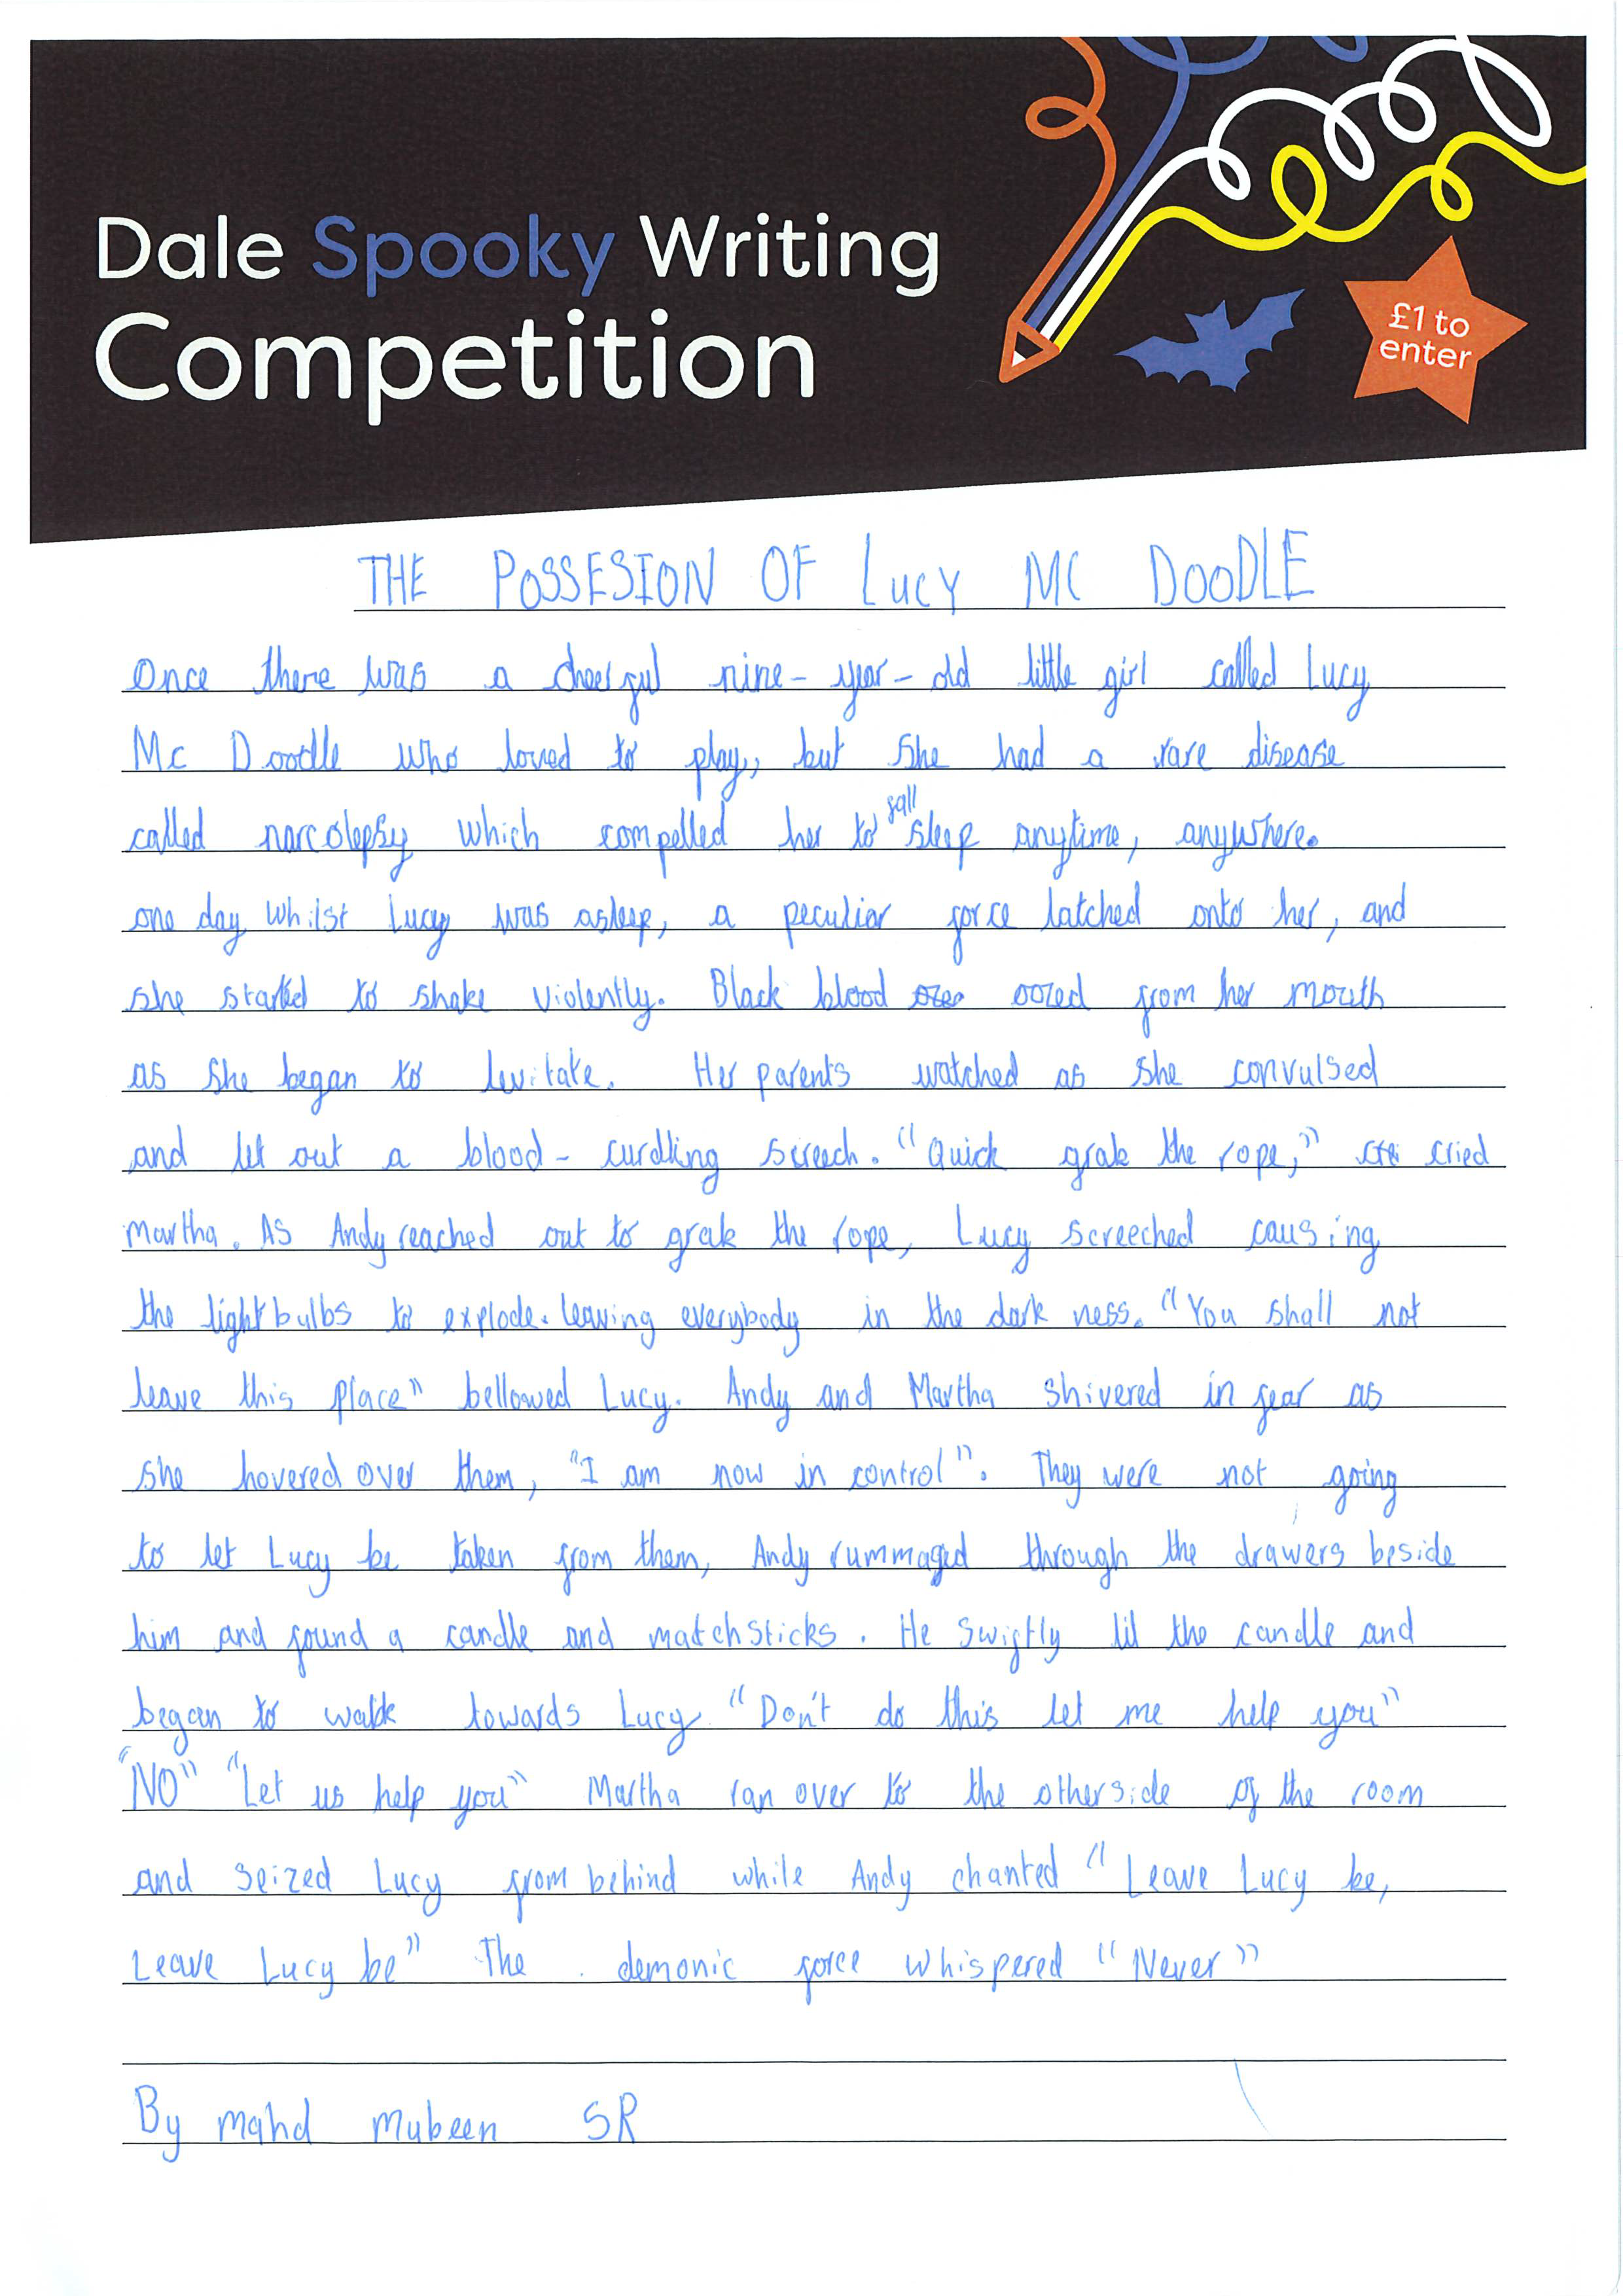 Dale Spooky Writing
Competition
£1 to
enter
THE POSSESION OF LUCY MC DOODLE
Once there was a cheerful nine-year-old little girl called Lucy
Mc Doodle who loved to play, but she had a rare disease
called narcolepsy which compelled her to fall sleep anytime, anywhere.
one day whilst Lucy was asleep, a peculiar force latched onto her, and
she started to shake violently. Black blood ozeo oozed from her mouth
as she began to levitate. Her parents watched as she convulsed
and let out a blood-curdling screech. "Quick grab the rope," cried
martha. As Andy reached out to grab the rope, Lucy screeched causing
the lightbulbs to explode. leaving everybody in the dark ness. "You shall not
leave this place" bellowed Lucy. Andy and Martha shivered in fear as
she hovered over them, "I am now in control". They were not going
to let Lucy be taken from them, Andy rummaged through the drawers beside
him and found a candle and matchsticks. He swiftly lit the candle and
began to walk towards Lucy "Don't do this let me help you"
"NO" "Let us help you" Martha ran over to the otherside of the room
and seized Lucy from behind while Andy chanted "Leave Lucy be,
Leave Lucy be" The demonic force whispered "Never"
By mahd mubeen 5R